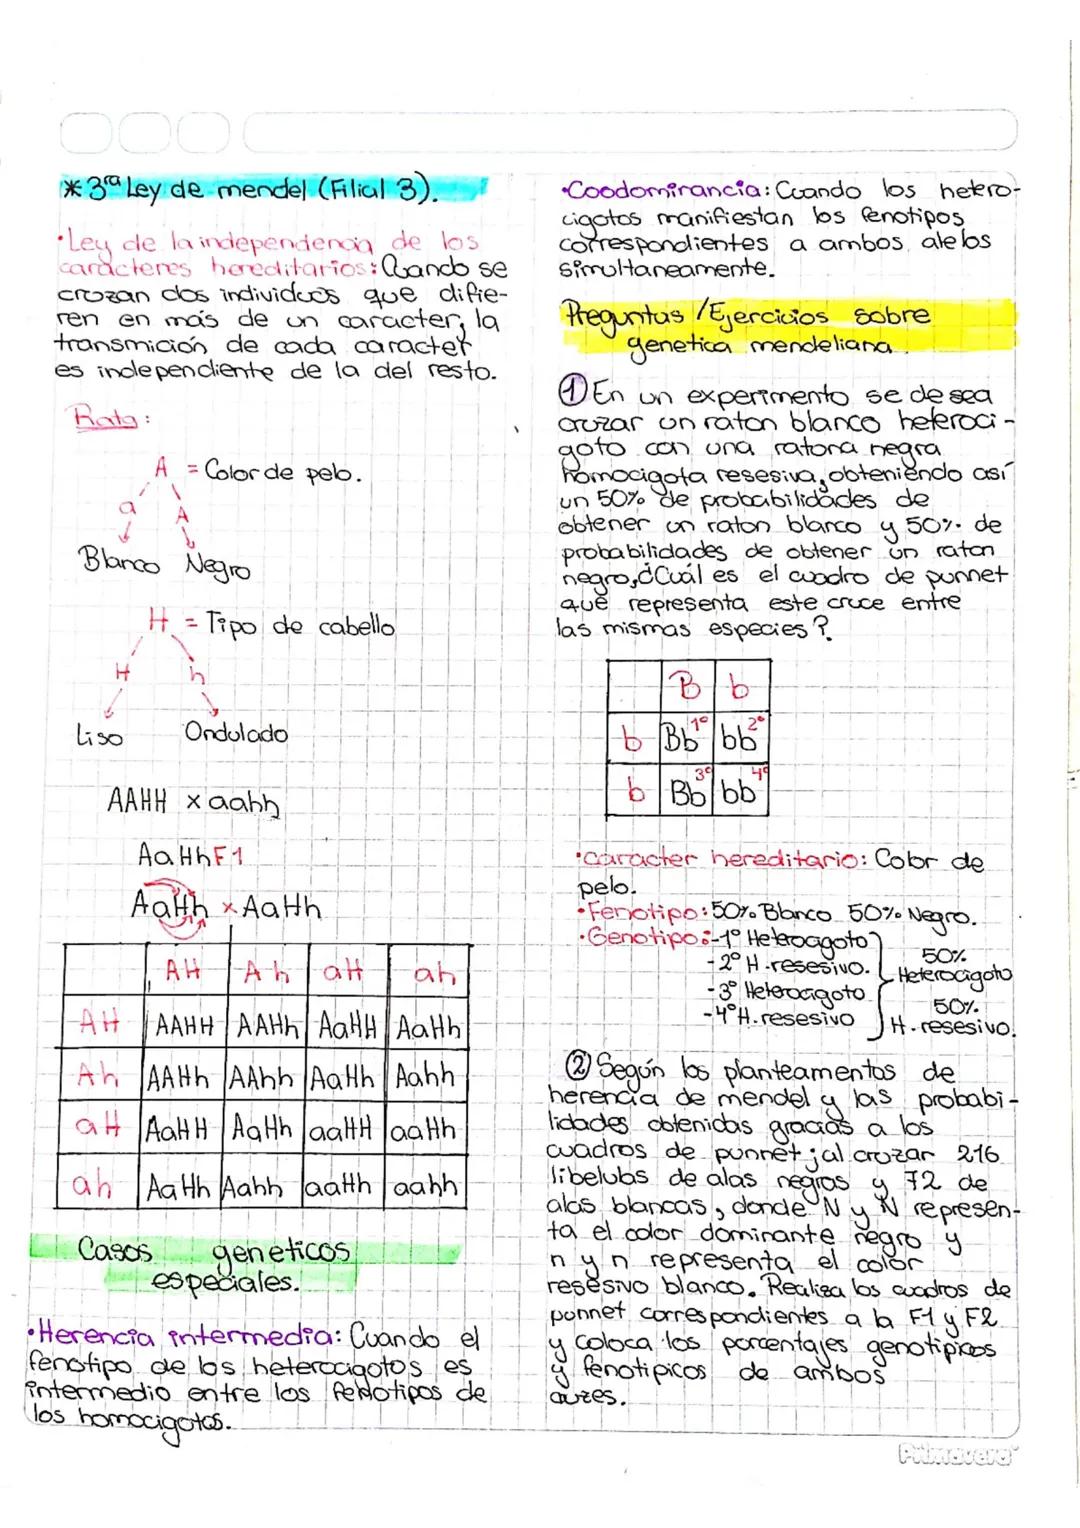 * 3ra Ley de mendel (Filial 3).
•Ley de la independencia de los
caracteres hereditarios: Cuando se
cruzan dos individuos que difie-
ren en más de un caracter, la
transmición de cada caracter
es independiente de la del resto.
Rata:
A = Color de pelo.
a A
Blanco Negro
H = Tipo de cabello
H h
Liso Ondulado
AAHH x aahh
AaHh F1
AaHh x AaHh
AH Ah aH ah
AH AAHH AAHh AaHH AaHh
Ah AAHh AAhh AaHh Aahh
aH AaHH AaHh aaHH aaHh
ah AaHh Aahh aaHh aahh
Casos geneticos
especiales.
•Herencia intermedia: Cuando el
fenotipo de los heterocigotos es
intermedio entre los fenotipos de
los homocigotos.
•Coodominancia: Cuando los hetero-
cigotos manifiestan los fenotipos
correspondientes a ambos alelos
simultaneamente.
Preguntas / Ejercicios sobre
genetica mendeliana.
① En un experimento se desea
cruzar un raton blanco heteroci-
goto con una ratona negra
homocigota resesiva, obteniendo así
un 50% de probabilidades de
obtener un raton blanco y 50% de
probabilidades de obtener un raton
negro, ¿Cuál es el cuadro de punnet
que representa este cruce entre
las mismas especies?
B b
b Bb 1° bb 2°
b Bb 3° bb 4°
•caracter hereditario: Color de
pelo.
•Fenotipo: 50% Blanco 50% Negro.
•Genotipo: -1° Heterocigoto
-2° H.resesivo.
-3° Heterocigoto
-4° H.resesivo
50%
Heterocigoto
50%
H.resesivo.
② Según los planteamentos de
herencia de mendel y las probabi-
lidades obtenidas gracias a los
cuadros de punnet; al cruzar 216
libelulas de alas negras y 72 de
alas blancas, donde N y N represen-
ta el color dominante negro y
n y n representa el color
resesivo blanco. Realiza los cuadros de
punnet correspondientes a la F1 y F2
y coloca los porcentajes genotipicos
y fenotipicos de ambos
cruzes.
Primavera